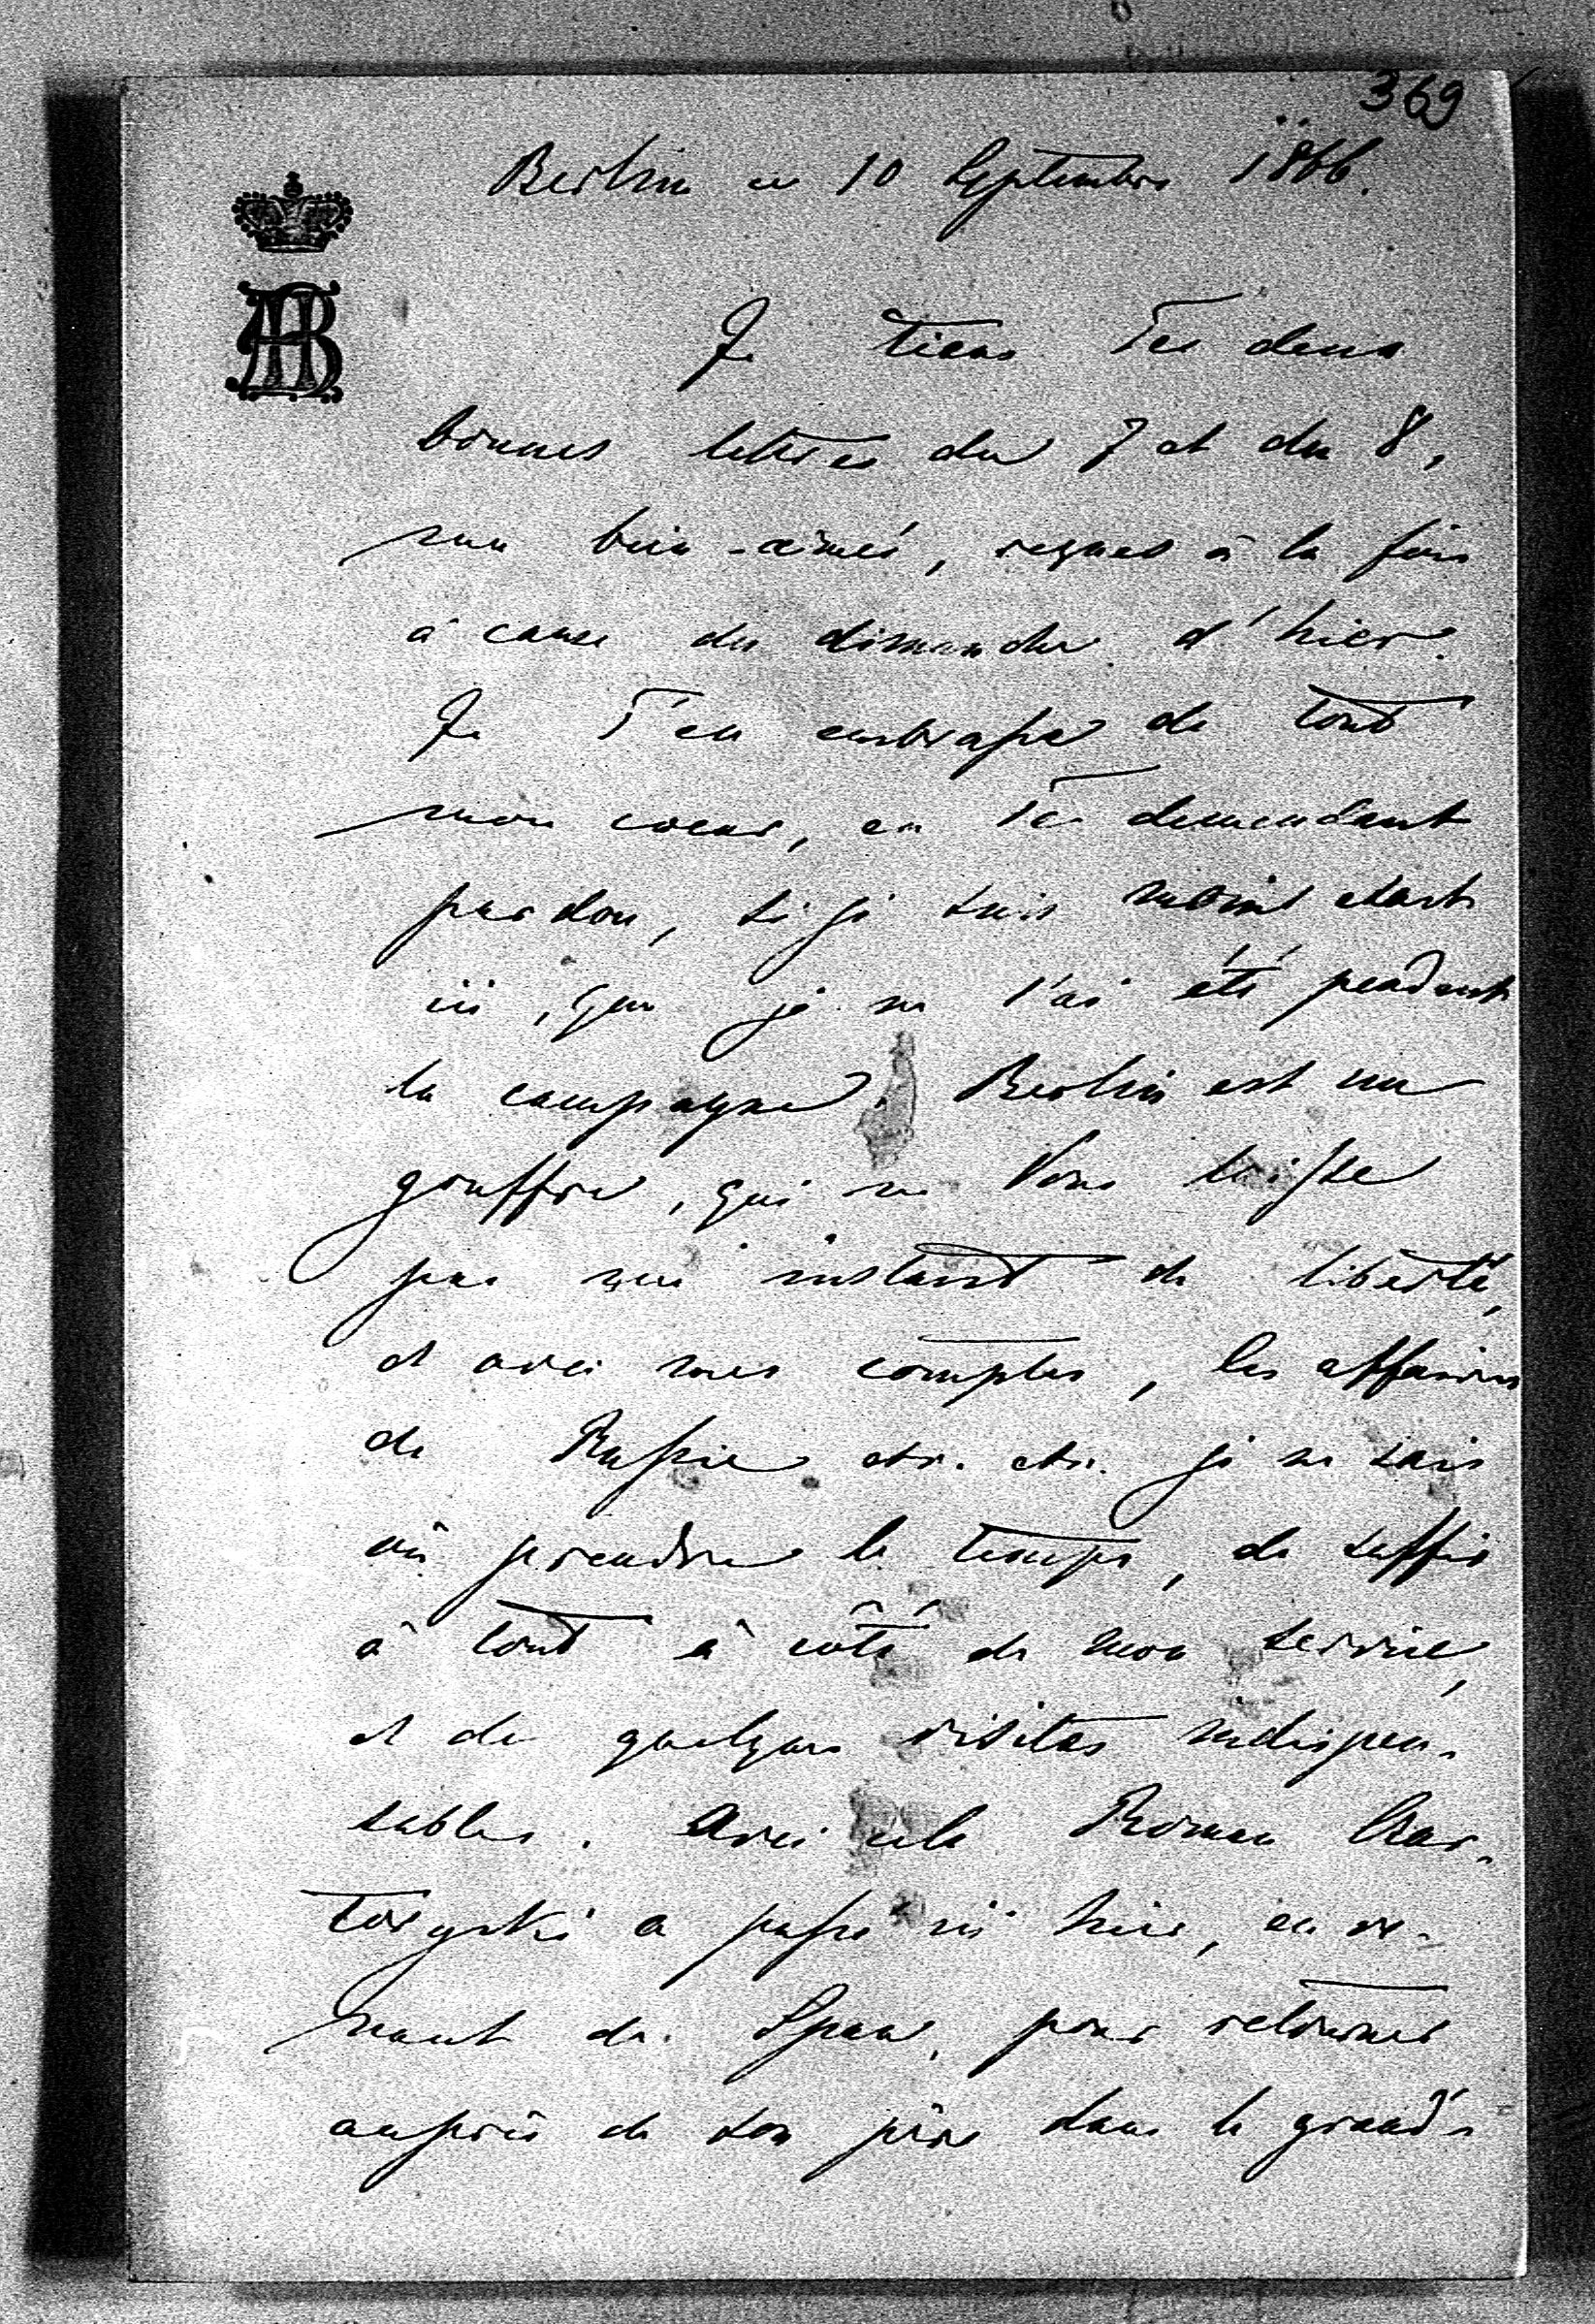 369
Berlin ce 10 Septembre 1866.
AB
Je tiens Tes deux
bonnes lettres du 7 et du 8,
mon bien-aimé, reçues à la fois
à cause du dimanche d'hier.
Je T'en embrasse de tout
mon coeur, en Te demandant
pardon, si je suis moins exact
ici, que je ne l'ai été pendant
la campagne. Berlin est un
gouffre, qui ne Vous laisse
pas un instant de liberté,
et avec mes comptes, les affaires
de Russie etc. etc. je ne sais
où prendre le temps, de suffir
à tout à côté de mon service,
et de quelques visites indispen-
sables. Avec cela Roman Czar-
toryski a passé ici hier, en ve-
nant de Spaa, pour retourner
auprès de son père dans le grand-